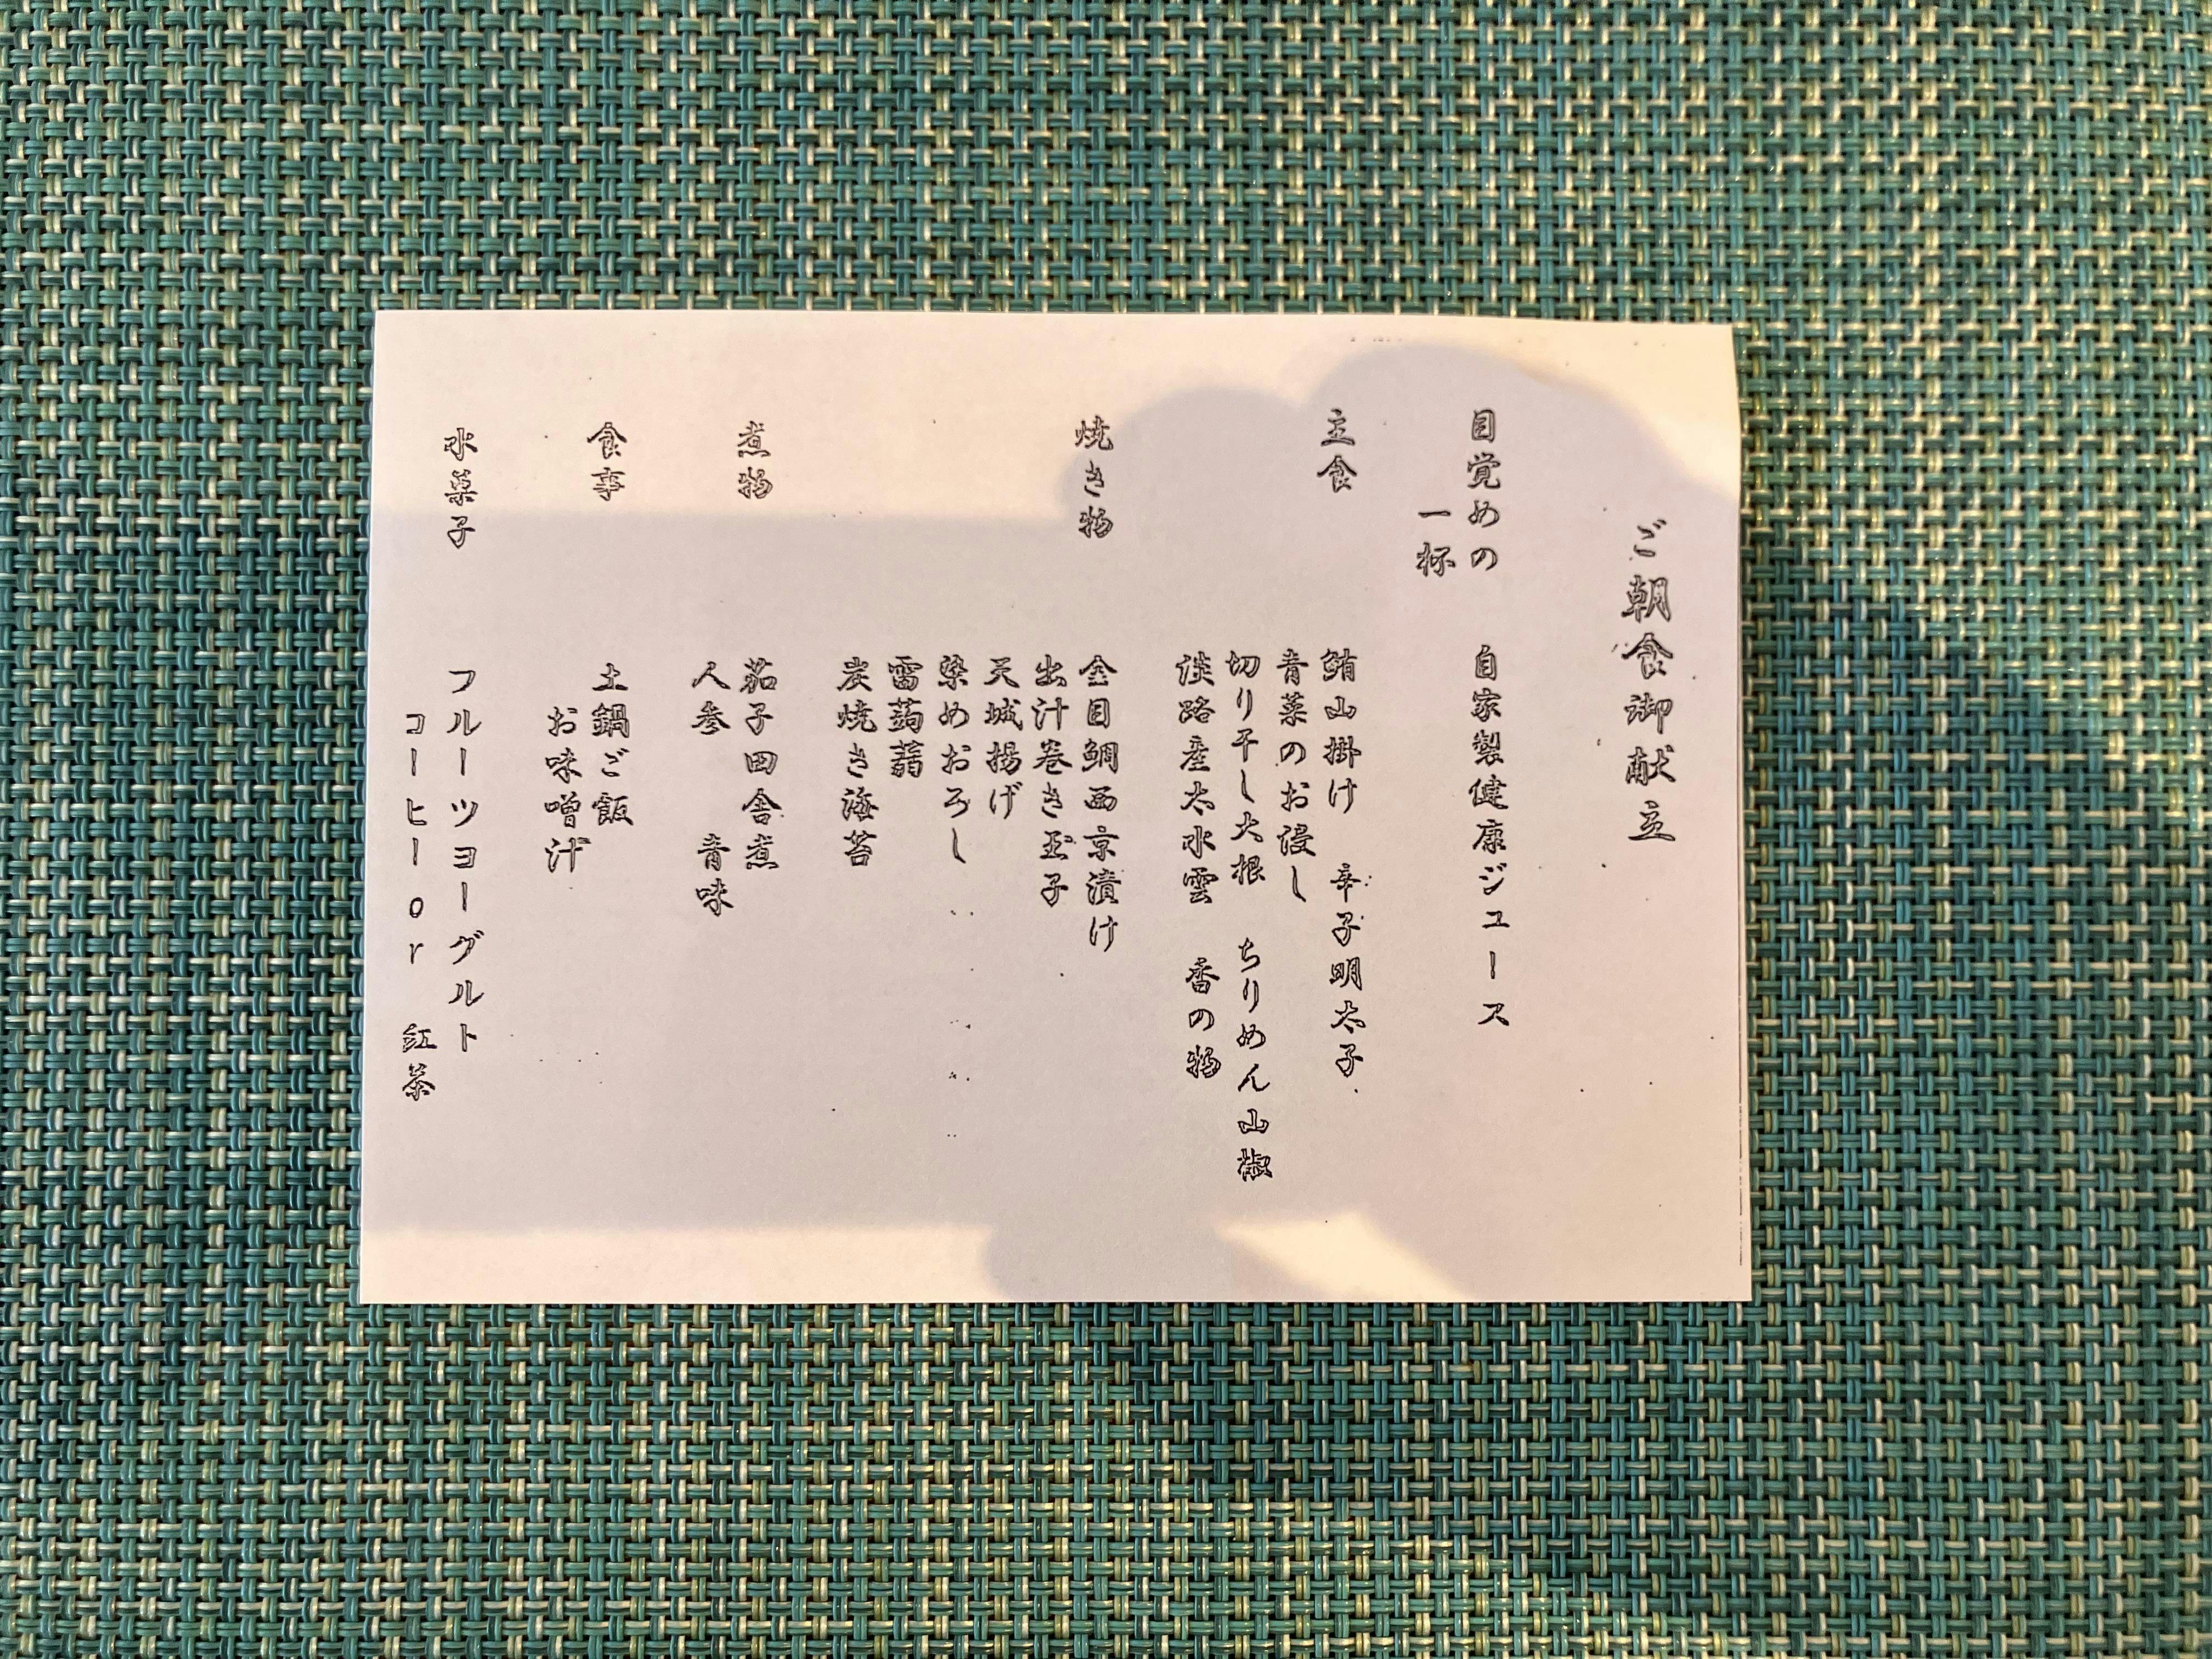 ご朝食御献立
目覚めの
一杯
自家製健康ジュース
主食
鮪山掛け　辛子明太子
青菜のお浸し
切り干し大根　ちりめん山椒
淡路産太水雲　香の物
焼き物
金目鯛西京漬け
出汁巻き玉子
天城揚げ
染めおろし
雷蒟蒻
炭焼き海苔
煮物
茄子田舎煮
人参　青味
食事
土鍋ご飯
お味噌汁
水菓子
フルーツヨーグルト
コーヒーor　紅茶